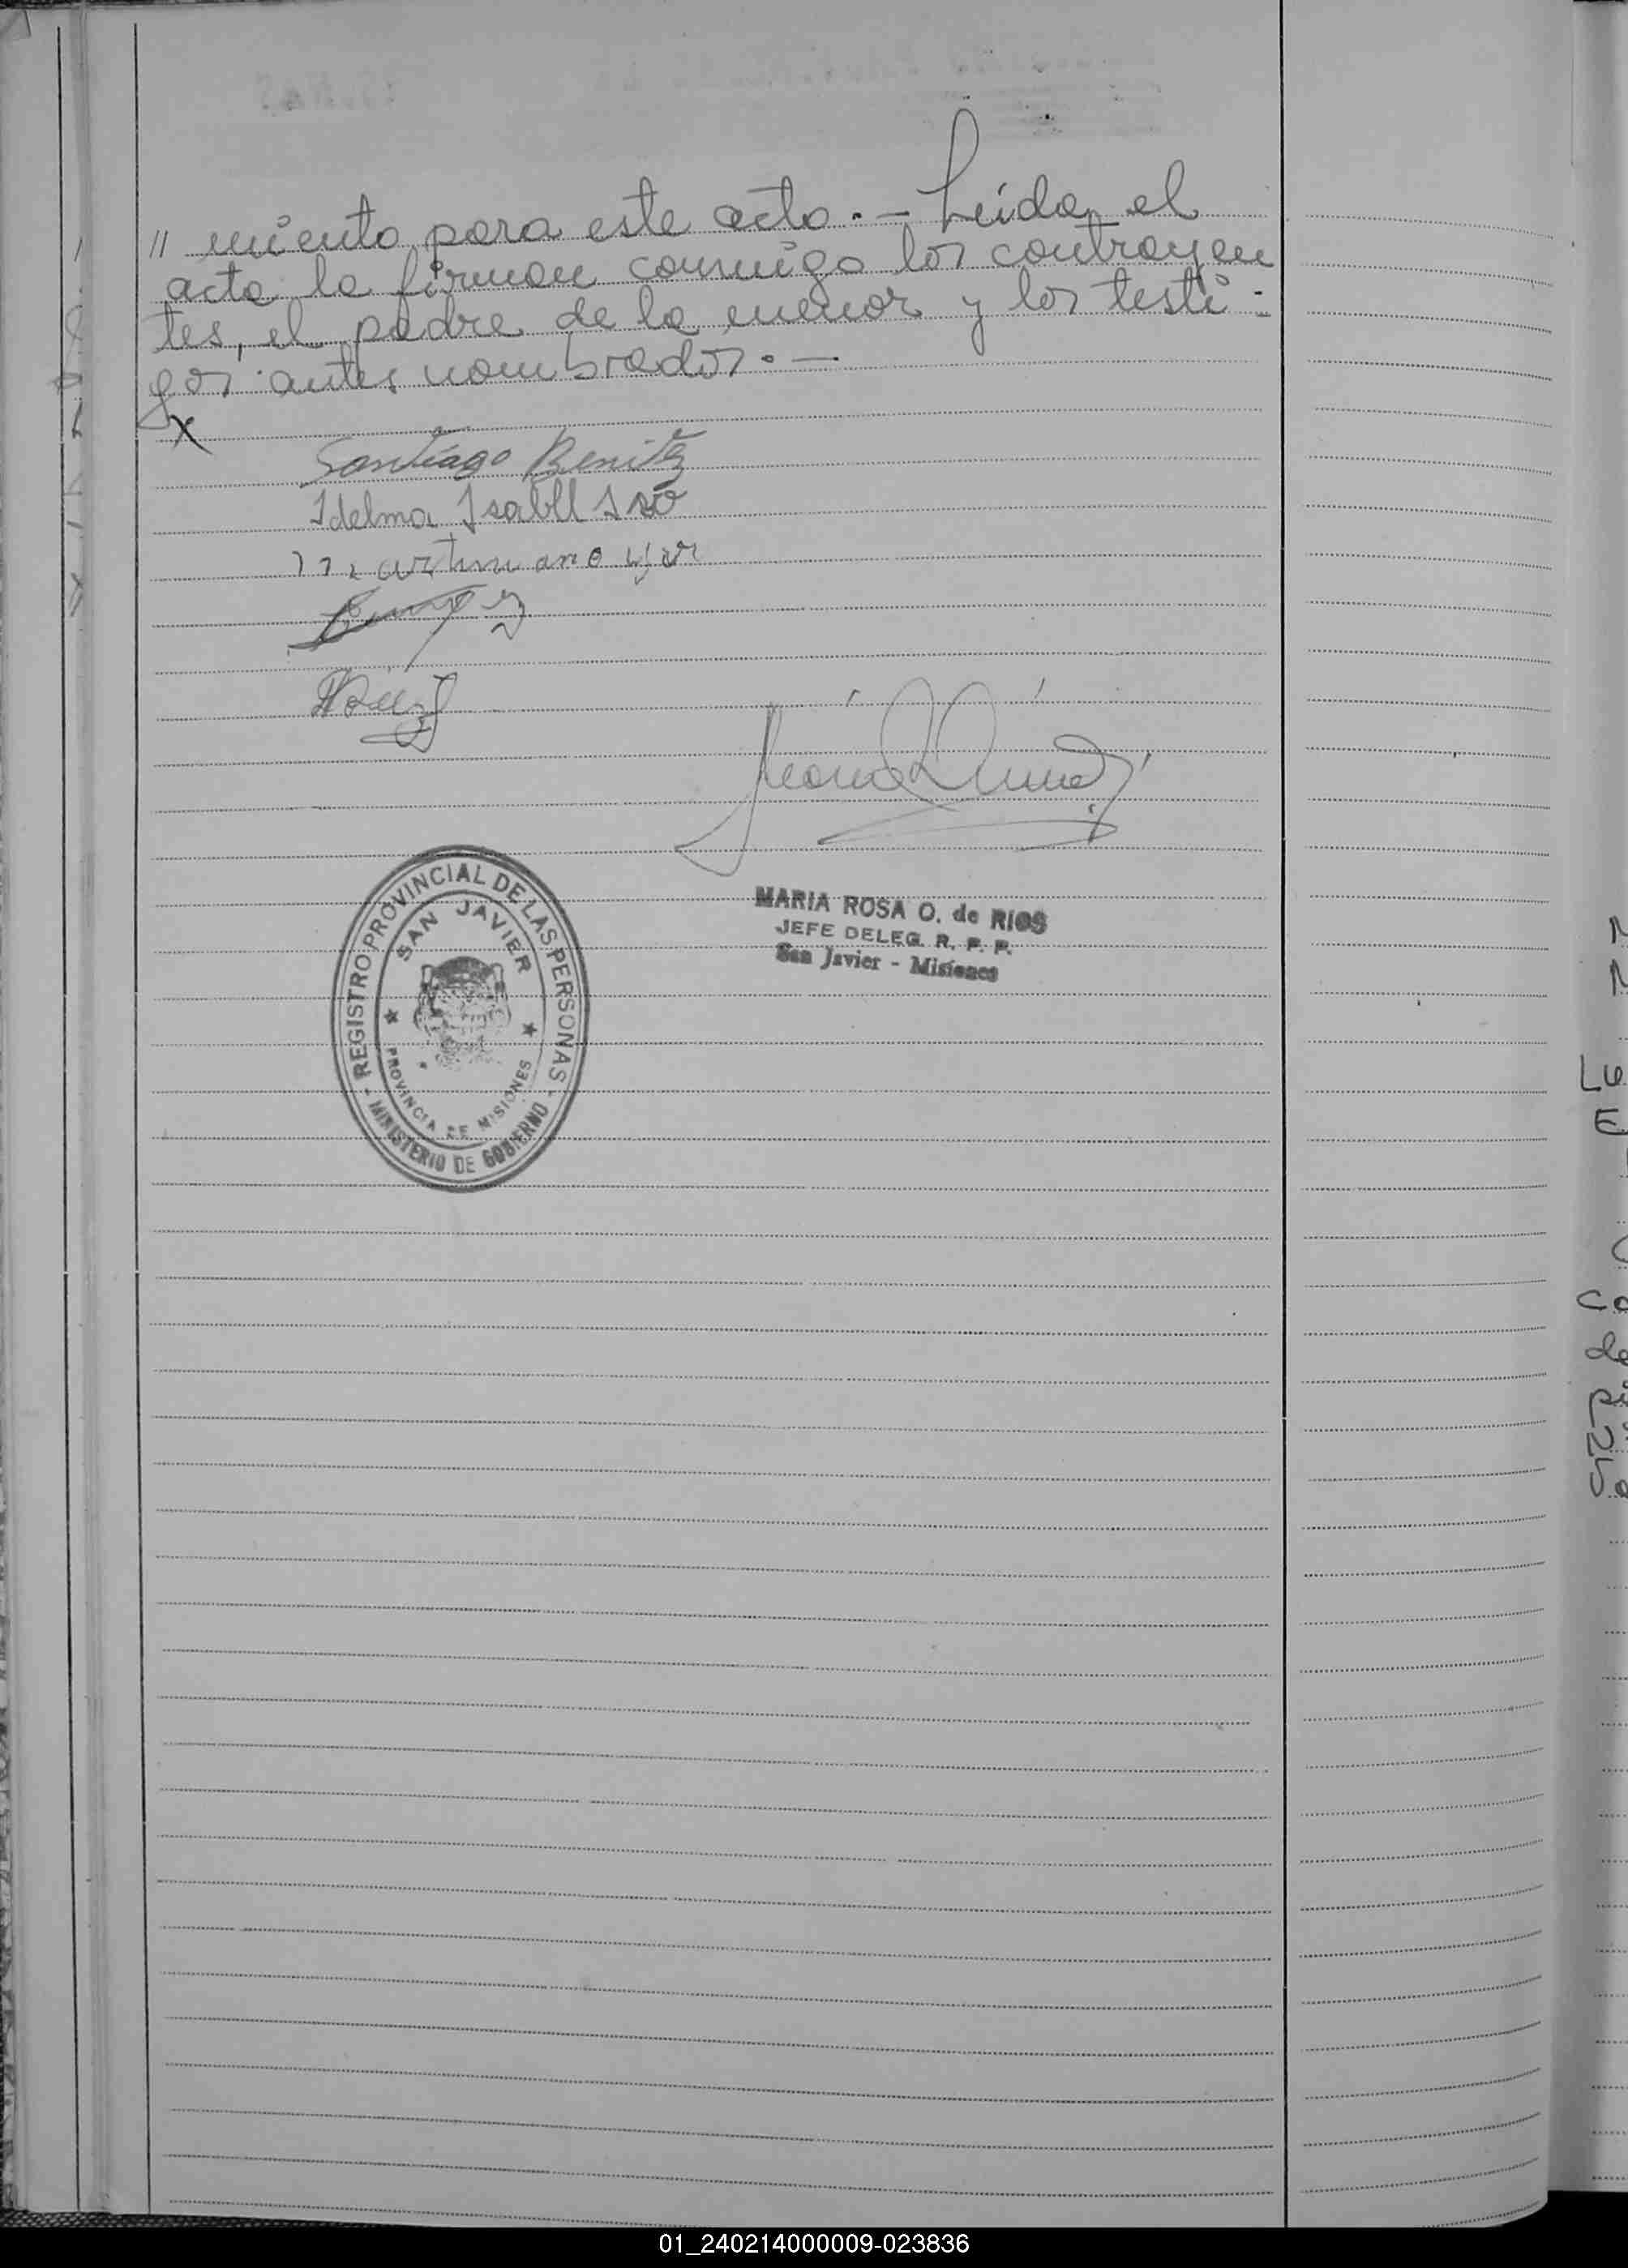 // miento para este acto.- Leida el
acta la firman conmigo los contrayen
tes, el padre de la menor y los testi-
gos antes nombrados.-
X
Santiago Benitez
Idelma Isabel
MARIA ROSA O. de RIOS
JEFE DELEG. R. P. P.
San Javier - Misiones
REGISTRO PROVINCIAL DE LAS PERSONAS
SAN JAVIER
PROVINCIA DE MISIONES
MINISTERIO DE GOBIERNO
01_240214000009-023836